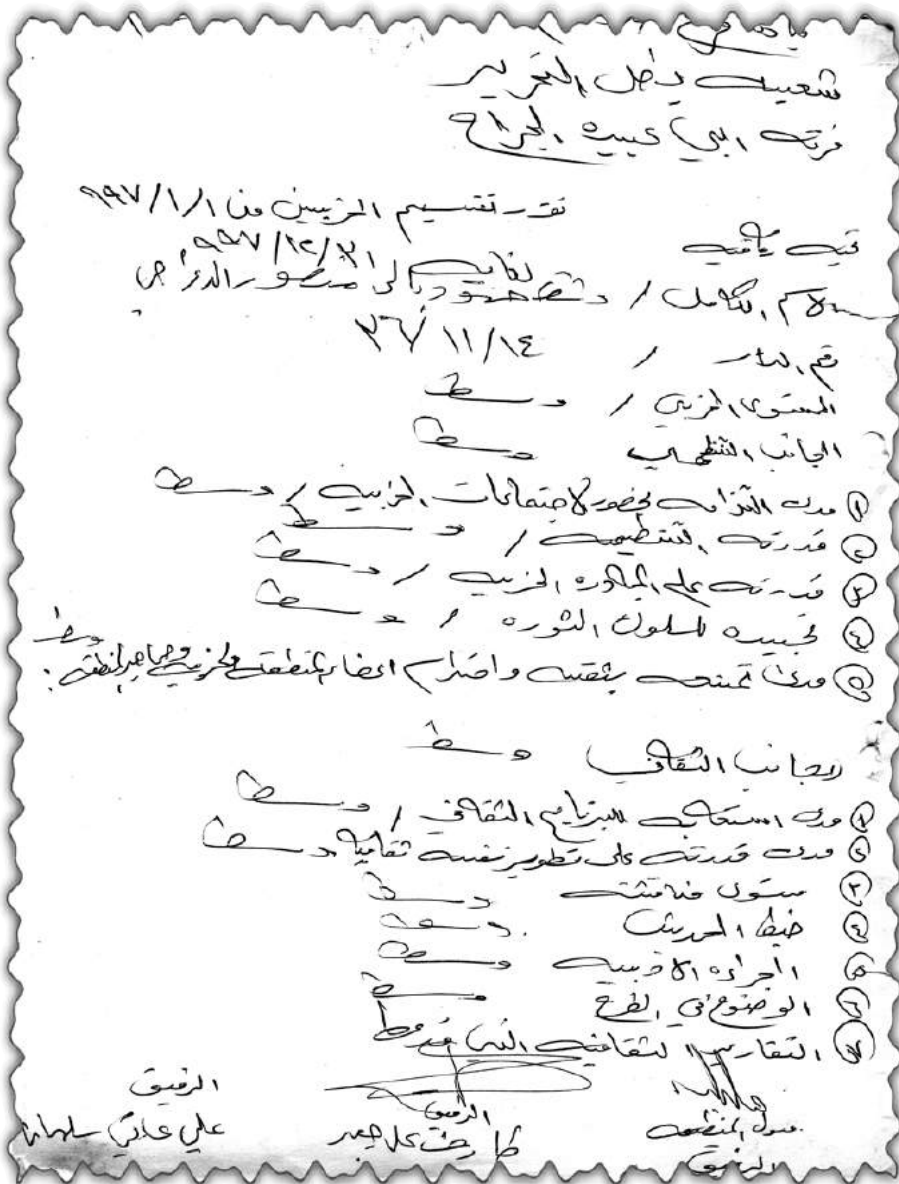 شعبة بطل التحرير
فرقة ابي عبيدة الجراح
تقدير تقسيم الحزبيين من ١/١/٩٩٧
لغاية ٣١/١٢/٩٩٧
الاسم الكامل /
رقم الدار / ٣٦/١١/١٤
المستوى الحزبي / وسط
الجانب التنظيمي وسط
١ مدى التزامه بحضور الاجتماعات الحزبية / وسط
٢ قدرته التنظيمية / وسط
٣ قدرته على المبادره الحزبية / وسط
٤ تجسيده للسلوك الثوره / وسط
٥ مدى تمتعه بثقة واحترام اعضاء المنظمة الحزبية وجماهير المنطقة : وسط
الجانب الثقافي وسط
١ مدى استيعابه البرنامج الثقافي / وسط
٢ مدى قدرته على تطوير نفسه ثقافيا وسط
٣ مستوى مناقشته وسط
٤ ضبط الحديث وسط
٥ الجراءه الادبية وسط
٦ الوضوح في الطرح وسط
٧ التقارير الثقافية التي
مسؤول المنظمة
الرفيق
الرفيق
الرفيق
علي سلمان